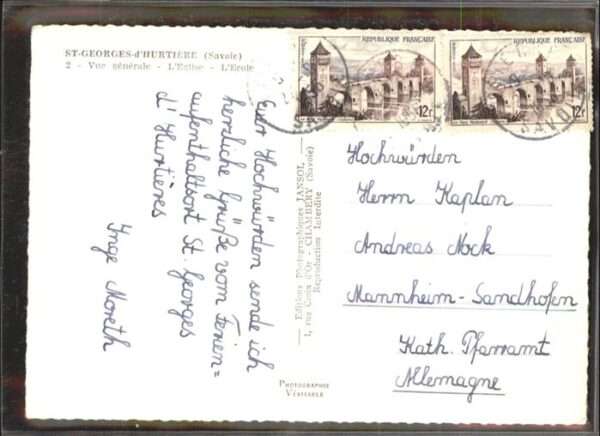 ST-GEORGES-d'HURTIÈRE (Savoie)
2 - Vue générale - L'Eglise - L'Ecole
Euer Hochwürden sende ich
herzliche Grüße vom Ferien=
aufenthaltsort St. Georges
d'Hurtières
Inge Moreth
Editions Photographiques JANSOL
1, rue Croix d'Or - CHAMBÉRY (Savoie)
Reproduction Interdite
PHOTOGRAPHIE
VÉRITABLE
REPUBLIQUE FRANÇAISE
12F
REPUBLIQUE FRANÇAISE
12F
SAVOIE
Hochwürden
Herrn Kaplan
Andreas Nock
Mannheim-Sandhofen
Kath. Pfarramt
Allemagne